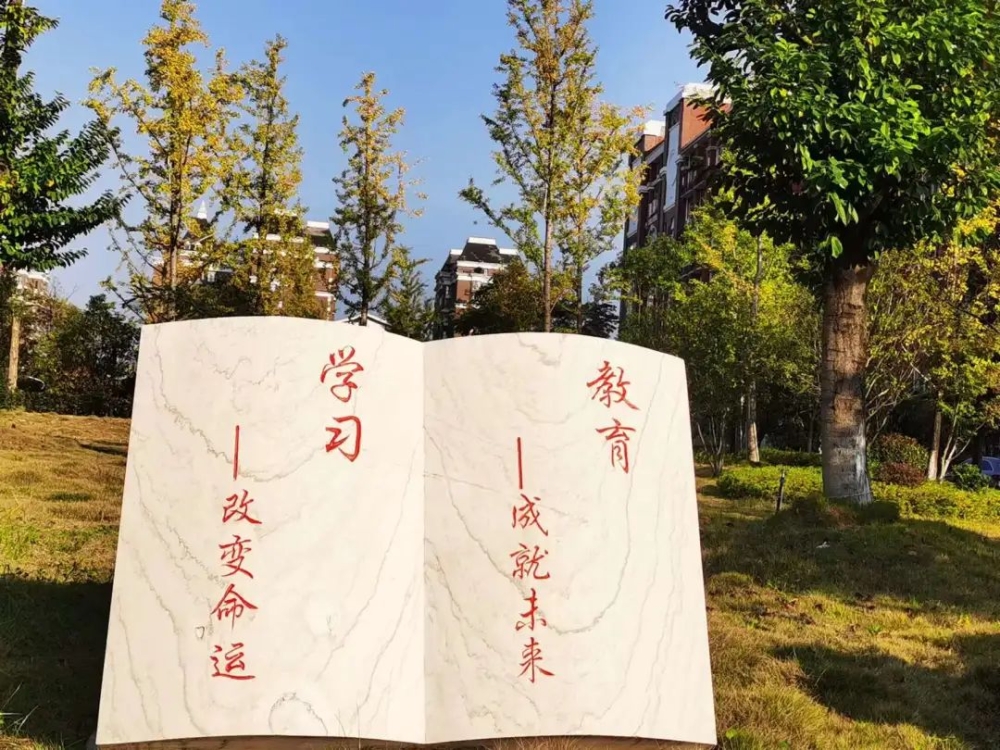 教育
—成就未来
学习
—改变命运